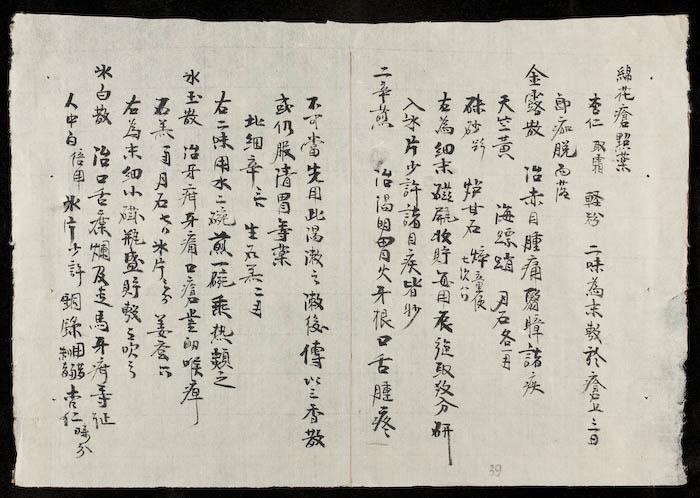 綿花瘡點藥
杏仁 取霜 輕粉 二味為末敷於瘡上二三日
即痂脫而落
金露散 治赤目腫痛翳障諸疾
天竺黃 海螵蛸 月石各一兩
硃砂 炉甘石
右為細末磁瓶收貯每用 少許
入冰片少許諸目疾皆妙
二辛煎 治陽明胃火牙根口舌腫疼
不可當先用此湯漱之漱後傅以三香散
或仍服清胃等藥
北細辛三 生石羔一兩
右二味用水二碗煎一碗乘热頻之
冰玉散 治牙疳牙痛口瘡 喉痺
石羔一兩月石七 冰片三分 姜蚕
右為末細小磁瓶盛貯敷之吹之
冰白散 治口舌糜爛及走馬牙疳等证
人中白倍用 冰片少許 銅綠用 杏仁
39